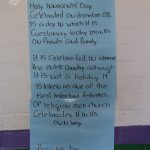 Holy Innocents Day
Celebrated on December 28,
is a day in which it is
customary to play pranks
on friends and family.
It is celebrated in almost
the whole country although
it is not a holiday. It
is taken as one of the
most important
of religion each church
celebrates it in its
own way